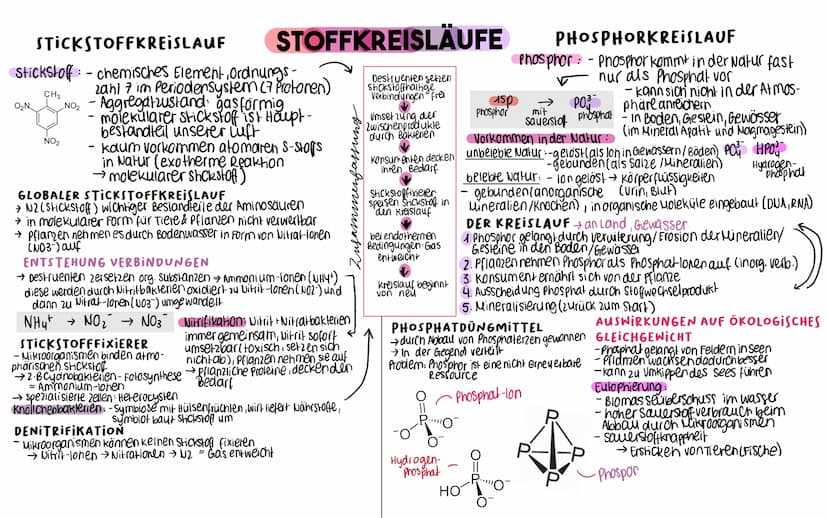 STOFFKREISLÄUFE
STICKSTOFFKREISLAUF
Stickstoff: - chemisches Element, Ordnungs-
zahl 7 im Periodensystem (7 Protonen)
- Aggregatzustand: gasförmig
- molekularer Stickstoff ist Haupt-
bestandteil unserer Luft
- kaum vorkommen atomaren S-stoffs
in Natur (exotherme Reaktion
→ molekularer Stickstoff)
CH₃
O₂N
NO₂
NO₂
GLOBALER STICKSTOFFKREISLAUF
→ N2 (Stickstoff) wichtiger Bestandteile der Aminosäuren
→ in molekularer Form für Tiere & Pflanzen nicht verwertbar
→ Pflanzen nehmen es durch Bodenwasser in Form von Nitrat-Ionen
(NO3⁻) auf
ENTSTEHUNG VERBINDUNGEN
→ Destruenten zersetzen org. Substanzen → Ammonium-Ionen (NH4⁺)
diese werden durch Nitritbakterien oxidiert zu Nitrit-Ionen (NO2⁻) und
dann zu Nitrat-Ionen (NO3⁻) umgewandelt
NH₄⁺ → NO₂⁻ → NO₃⁻
Nitrifikation: Nitrit + Nitratbakterien
immer gemeinsam, Nitrit sofort
umsetzbar (toxisch, setzen sich
nicht ab), Pflanzen nehmen sie auf
→ pflanzliche Proteine, decken den
Bedarf
STICKSTOFFFIXIERER
- Mikroorganismen binden atmo-
sphärischen Stickstoff
→ z.B Cyanobakterien - Fotosynthese
= Ammonium-Ionen
→ spezialisierte Zellen: Heterocysten
Knöllchenbakterien: - Symbiose mit Hülsenfrüchten, Wirt liefert Nährstoffe,
Symbiot baut Stickstoff um
DENITRIFIKATION
- Mikroorganismen können keinen Stickstoff fixieren
→ Nitrit-Ionen → Nitrationen → N2 = Gas entweicht
Zusammenfassung
Destruenten setzen
stickstoffhaltige
Verbindungen frei
Umsetzung der
Zwischenprodukte
durch Bakterien
Konsumenten decken
ihren Bedarf
Stickstofffixierer
speisen Stickstoff in
den Kreislauf
bei endothermen
Bedingungen: Gas
entweicht
Kreislauf beginnt
von neu
PHOSPHORKREISLAUF
Phosphor: - Phosphor kommt in der Natur fast
nur als Phosphat vor
- kann sich nicht in der Atmos-
phäre anreichern
- in Boden, Gestein, Gewässer
(im Mineral Apatit und Magmagestein)
15P → PO₄³⁻
phosphor mit sauerstoff phosphat
Vorkommen in der Natur:
unbelebte Natur: - gelöst (als Ion in Gewässern / Böden) PO₄³⁻ HPO₄²⁻
- gebunden (als Salze / Mineralien)
Hydrogen-
phosphat
belebte Natur: - Ion gelöst → Körperflüssigkeiten
(Urin, Blut)
- gebunden (anorganische
Mineralien/Knochen), in organische Moleküle eingebaut (DNA, RNA)
DER KREISLAUF → an Land, Gewässer
1. Phosphor gelangt durch Verwitterung / Erosion der Mineralien/
Gesteine in den Boden / Gewässer
2. Pflanzen nehmen Phosphor als Phosphat-Ionen auf (inorg. Verb.)
3. Konsument ernährt sich von der Pflanze
4. Ausscheidung Phosphat durch Stoffwechselprodukt
5. Mineralisierung (zurück zum Start)
PHOSPHATDÜNGMITTEL
→ durch Abbau von Phosphaterzen gewonnen
→ In der Gegend verteilt
Problem: Phosphor ist eine nicht erneuerbare
Ressource
Phosphat-Ion
O
⁻O P O⁻
O⁻
Hydrogen-
phosphat
O
HO P O⁻
O⁻
P
P P
P
Phospor
AUSWIRKUNGEN AUF ÖKOLOGISCHES
GLEICHGEWICHT
- Phosphat gelangt von Feldern in Seen
- Pflanzen wachsen dadurch besser
- kann zu Umkippen des Sees führen
Eutophierung:
- Biomasseüberschuss im Wasser
- hoher Sauerstoffverbrauch beim
Abbau durch Mikroorganismen
- Sauerstoffknappheit
→ Ersticken von Tieren (Fische)